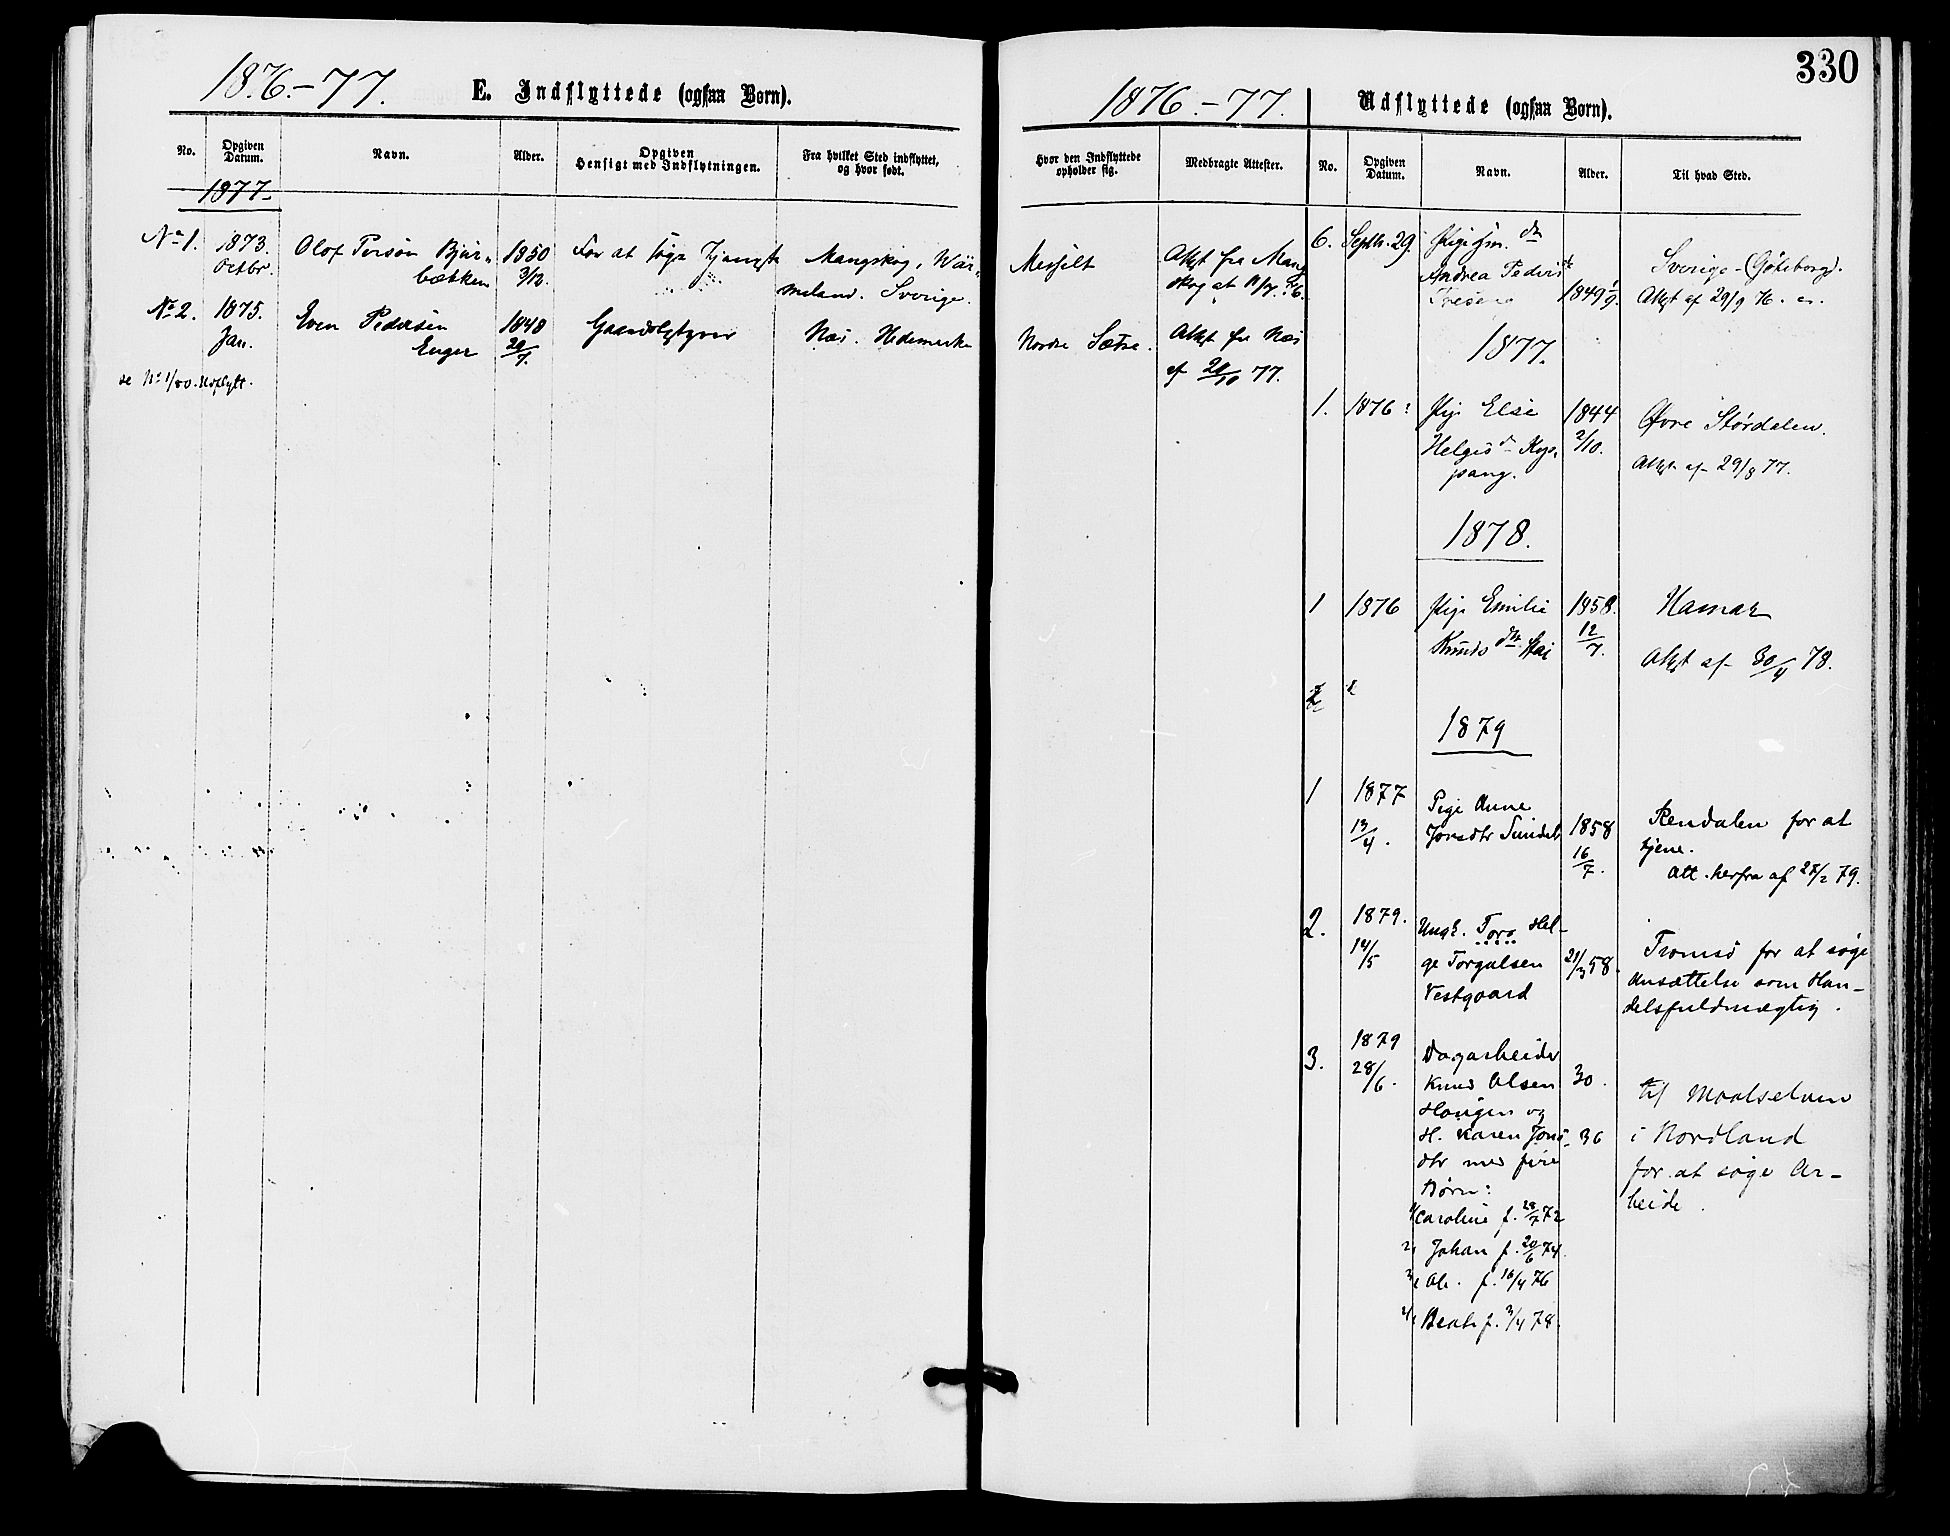 330
1876.-77.
E. Indflyttede (ogsaa Børn).
No.
Opgiven Datum.
Navn.
Alder.
Opgiven Hensigt med Indflytningen.
Fra hvilket Sted indflyttet, og hvor født.
1877.
No 1. 1873. Olof Persøn 1850 For at søge Mangskog, Wär-
Octbr. bækken 3/12. meland. Sverige.
No 2. 1875. Even Pedersen 1848 Næs. Hedemarken
Jan. Enger 29/7.
se No 1/80. Udflytt.
1876.-77.
Udflyttede (ogsaa Børn).
Hvor den Indflyttede opholder sig.
Medbragte Attester.
No.
Opgiven Datum.
Navn.
Alder.
Til hvad Sted.
Messelt Attst fra Mang-
skog at
Nordre Sætre. Attst fra Næs
af 20/10 77.
6. Septb. 29. Andrea Peders 1849 Sverige (Gøteborg).
Attst af 29/9 76.
1877.
1. 1876: Pige Else 1844 Øvre Størdalen.
Helgesd. Kop- 2/10. Attst af 29/8 77.
pang.
1878.
1 1876 Pige Emilie 1858. Hamar
Knudsdtr. Stai 12/7. Attst af 30/4 78.
2
1879
1 1877 Pige Anne Rendalen for at
13/4. Jonsdtr Sundet 1858 tjene.
16/7. Att. herfra af 27/2 79.
2. 1879. Ungk. Tore Hel- Tromsø for at søge
14/5 ge Torgalsen 21/3 58. Ansættelse som Han-
Vestgaard delsfuldmægtig.
3. 1879 Dagarbeider
28/6. Knud Olsen 30. til Maalselven
Haugen og
H. Karen Jons- 36 i Nordland
dtr med fire for at søge Ar-
Børn: beide.
1, Caroline f. 28/7 72
2, Johan f. 20/6 74.
3, Ole. f. 16/4 76
4, Beate f. 3/4 78.